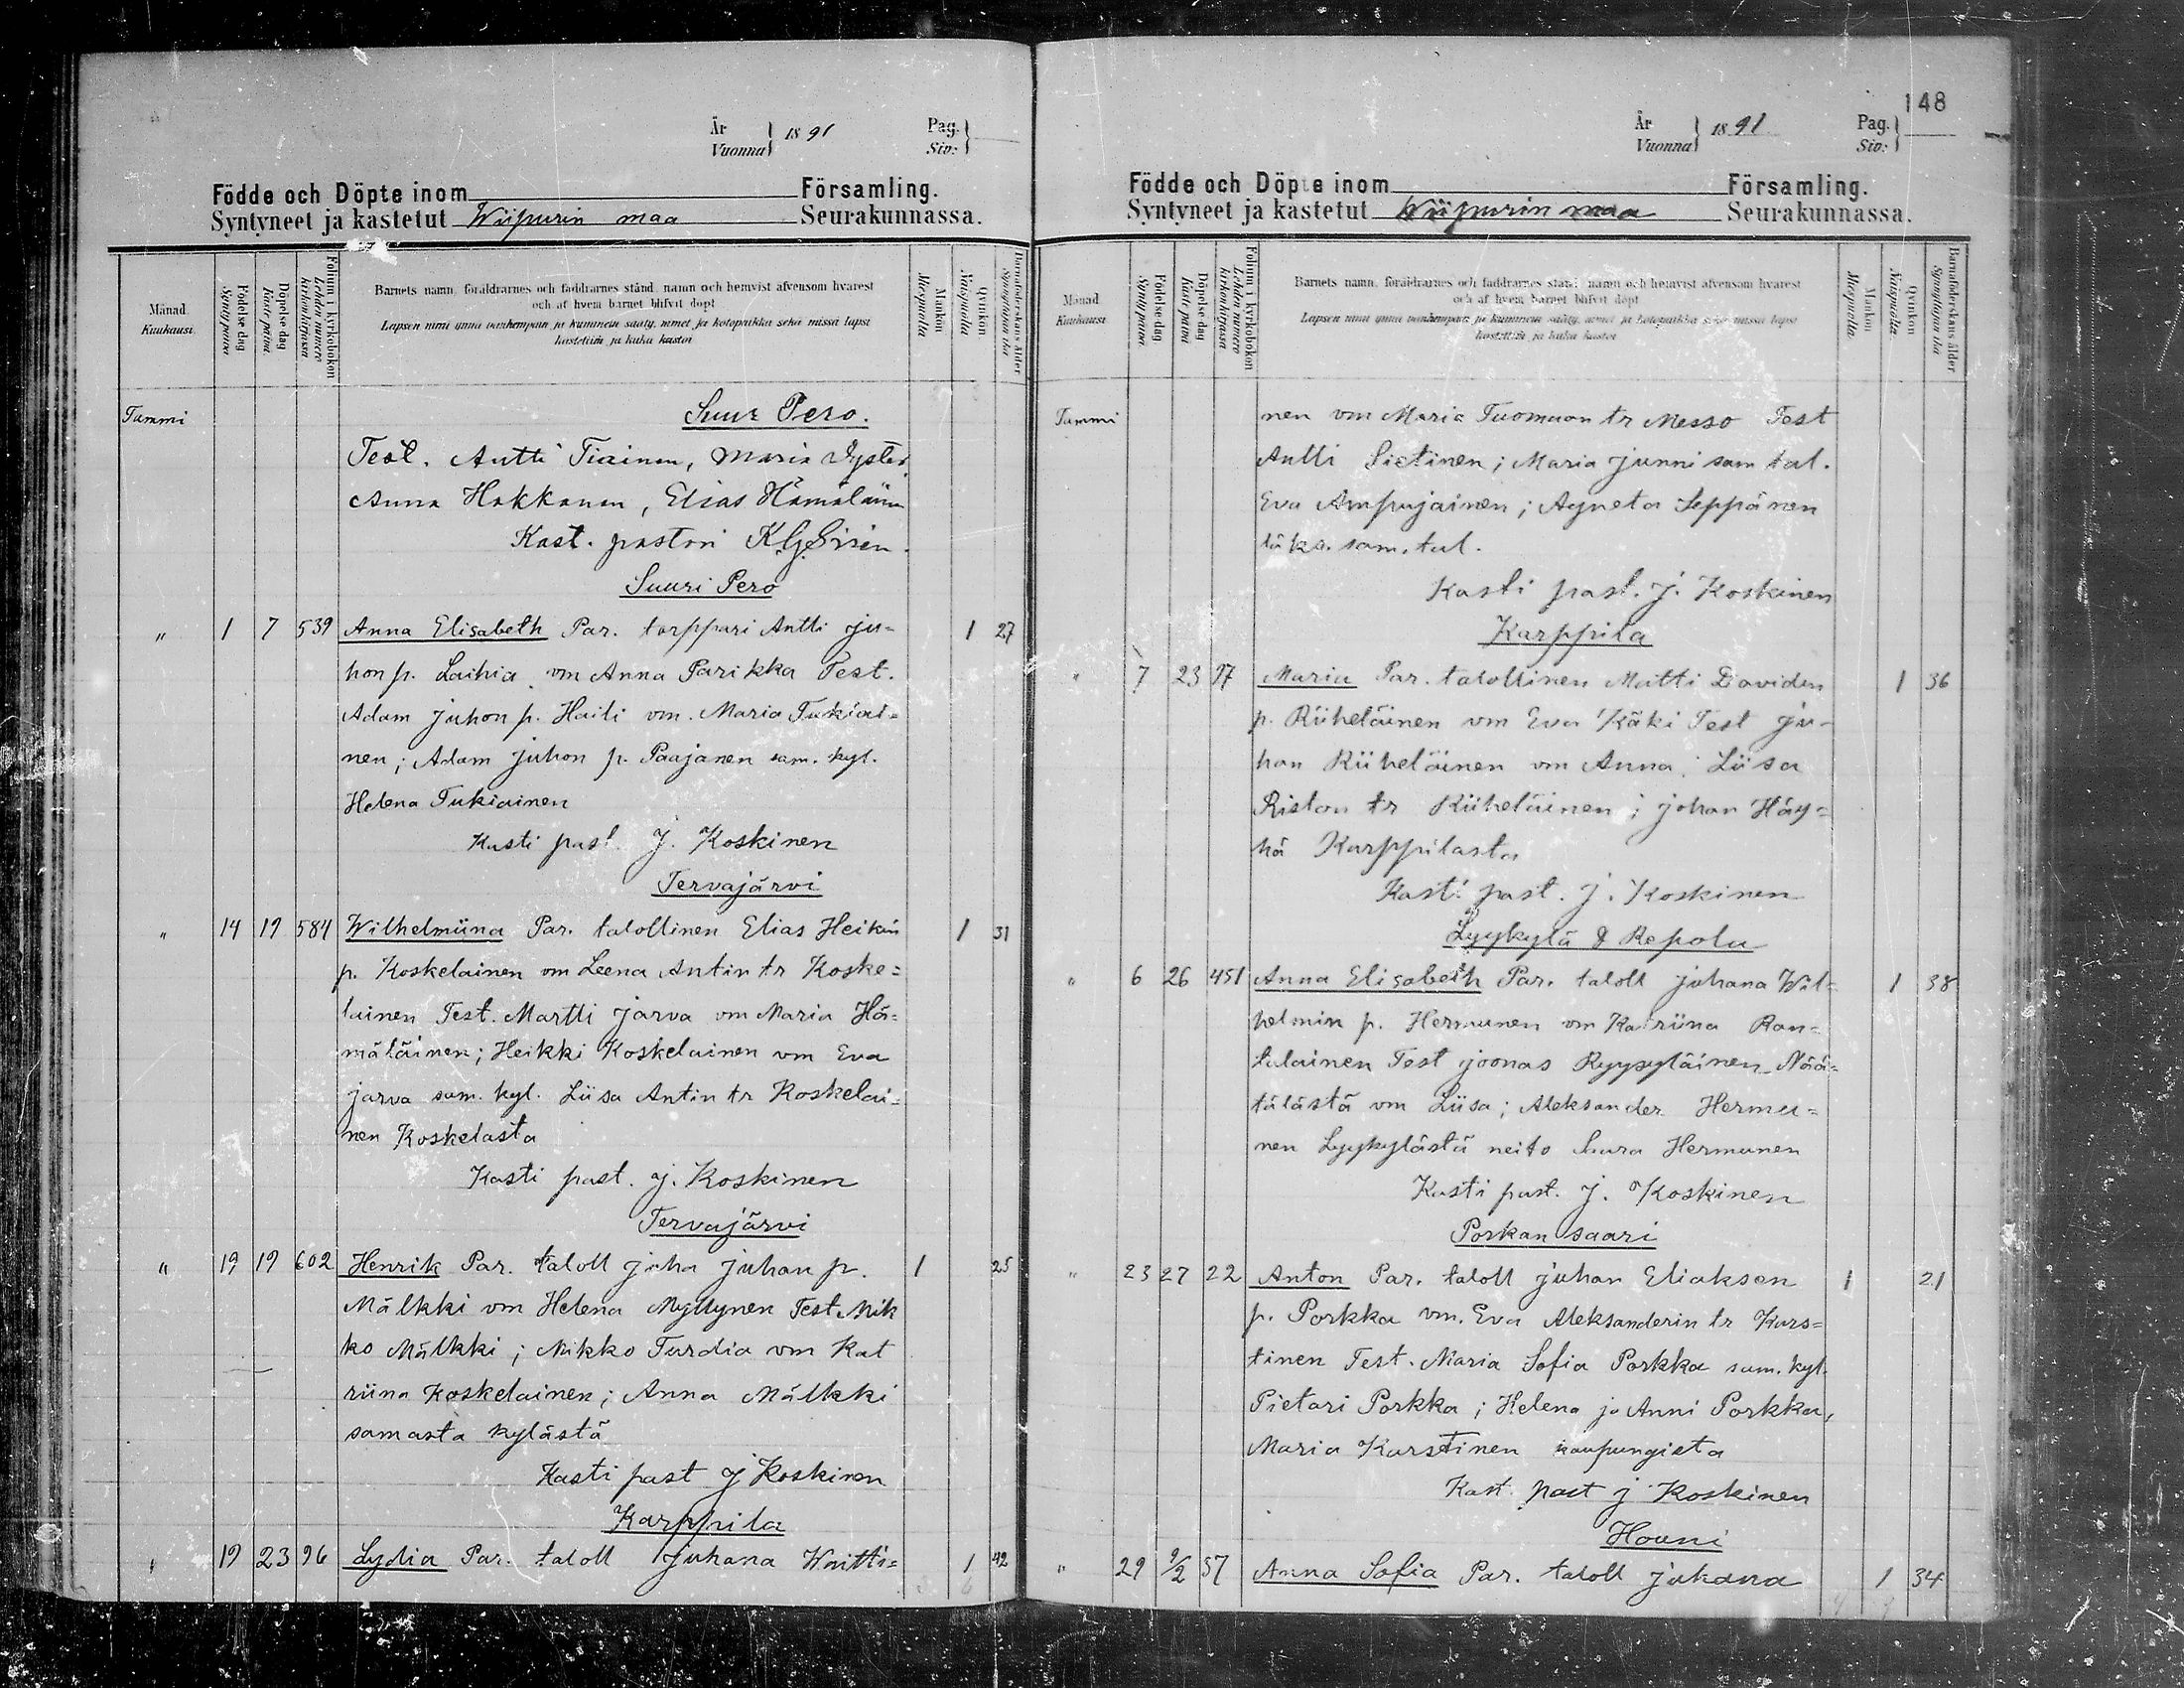 År
Vuonna } 1891
Pag.
Siv: }
Födde och Döpte inom Församling.
Syntyneet ja kastetut Wiipurin maa Seurakunnassa.
Månad.
Kuukausi.
Födelse dag
Syntypäivä
Döpelse dag
Kaste päivä
Folium i kyrkoboken
Lehden numero
kirkonkirjassa
Barnets namn, föräldrarnes och faddrarnes stånd, namn och hemvist äfvensom hvarest
och af hvem barnet blifvit döpt
Lapsen nimi ynnä vanhempain ja kummein sääty, nimet ja kotopaikka sekä missä lapsi
kastettiin ja kuka kastoi
Mankön
Miespuolta
Qvinkön
Naispuolta
Barnaföderskans ålder
Synnyttäjän ikä
Tammi Suur Pero.
Test. Antti Tiainen, Maria
Anna Hakkanen, Elias Hämäläinen
Kast. pastori K.G. Sirén.
Suuri Pero
" 1 7 539 Anna Elisabeth Par. torppari Antti Ju- 1 27
hon p. Laihia vm Anna Parikka Test.
Adam Juhon p. Haili vm. Maria Tukiai=
nen; Adam Juhon p. Paajanen sam. kyl.
Helena Tukiainen
Kasti past. J. Koskinen
Tervajärvi
" 14 19 584 Wilhelmiina Par. talollinen Elias Heikin 1 31
p. Koskelainen vm Leena Antin tr Koske=
lainen Test. Martti Jarva vm Maria Hä=
mäläinen; Heikki Koskelainen vm Eva
Jarva sam. kyl. Liisa Antin tr Koskelai=
nen Koskelasta
Kasti past. J. Koskinen
Tervajärvi
" 19 19 602 Henrik Par. taloll Juha Juhan p. 1 25
Mälkki vm Helena Myllynen Test. Mik
ko Mälkki; Mikko Turdia vm Kat
riina Koskelainen; Anna Mälkki
samasta kylästä
Kasti past J Koskinen
Karppila
" 19 23 96 Lydia Par. taloll Juhana Waitti= 1 42
148
År
Vuonna } 1891
Pag.
Siv: }
Födde och Döpte inom Församling.
Syntyneet ja kastetut Wiipurin maa Seurakunnassa.
Månad.
Kuukausi
Födelse dag
Syntypäivä
Döpelse dag
Kaste päivä
Folium i kyrkoboken
Lehden numero
kirkonkirjassa
Barnets namn, föräldrarnes och faddrarnes stånd, namn och hemvist äfvensom hvarest
och af hvem barnet blifvit döpt
Lapsen nimi ynnä vanhempain ja kummein sääty, nimet ja kotopaikka sekä missä lapsi
kastettiin ja kuka kastoi
Mankön
Miespuolta
Qvinkön
Naispuolta
Barnaföderskans ålder
Synnyttäjän ikä
Tammi nen vm Maria Tuomaan tr Messo Test
Antti Sietinen; Maria Junni sam tal.
Eva Ampujainen; Agneta Seppänen
läks. sam. tal.
Kasti past. J. Koskinen
Karppila
" 7 23 97 Maria Par. talollinen Matti Daviden 1 36
p. Riiheläinen vm Eva Käki Test Ju-
han Riiheläinen vm Anna; Liisa
Riston tr Riiheläinen; Johan Häy=
hä Karppilasta
Kasti past. J. Koskinen
Lyykylä & Repola
" 6 26 451 Anna Elisabeth Par. taloll Juhana Wil= 1 38
helmin p. Hermunen vm Katriina Ran=
talainen Test Joonas Ryypyläinen Nää=
tälästä vm Liisa; Aleksander Hermu=
nen Lyykylästä neito Saara Hermunen
Kasti past. J. Koskinen
Porkan saari
" 23 27 22 Anton Par. taloll Juhan Eliaksen 1 21
p. Porkka vm. Eva Aleksanderin tr Kars=
tinen Test. Maria Sofia Porkka sam. kyl.
Pietari Porkka; Helena ja Anni Porkka,
Maria Karstinen kaupungista
Kast. past J Koskinen
Houni
" 29 9/2 57 Anna Sofia Par. taloll Juhana 1 34